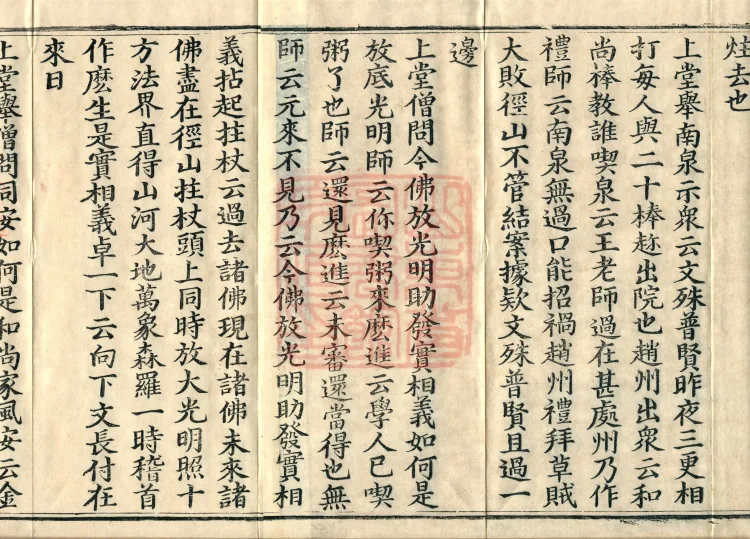 炷去也
上堂舉南泉示衆云文殊普賢昨夜三更相
打每人與二十棒趂出院也趙州出衆云和
尚棒教誰喫泉云王老師過在甚處州乃作
禮師云南泉無過口能招禍趙州禮拜草賊
大敗徑山不管結案據欵文殊普賢且過一
邊
上堂僧問今佛放光明助發實相義如何是
放底光明師云你喫粥來麽進云學人已喫
粥了也師云還見麽進云未審還當得也無
師云元來不見乃云今佛放光明助發實相
義拈起拄杖云過去諸佛現在諸佛未來諸
佛盡在徑山拄杖頭上同時放大光明照十
方法界直得山河大地萬象森羅一時稽首
作麽生是實相義卓一下云向下文長付在
來日
上堂舉僧問同安如何是和尚家風安云金